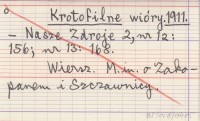 Krotofilne wióry. 1911.
- Nasze Zdroje 2, nr 12:
156; nr 13: 168.
Wiersz. M. in. o Zako-
panem i Szczawnicy.